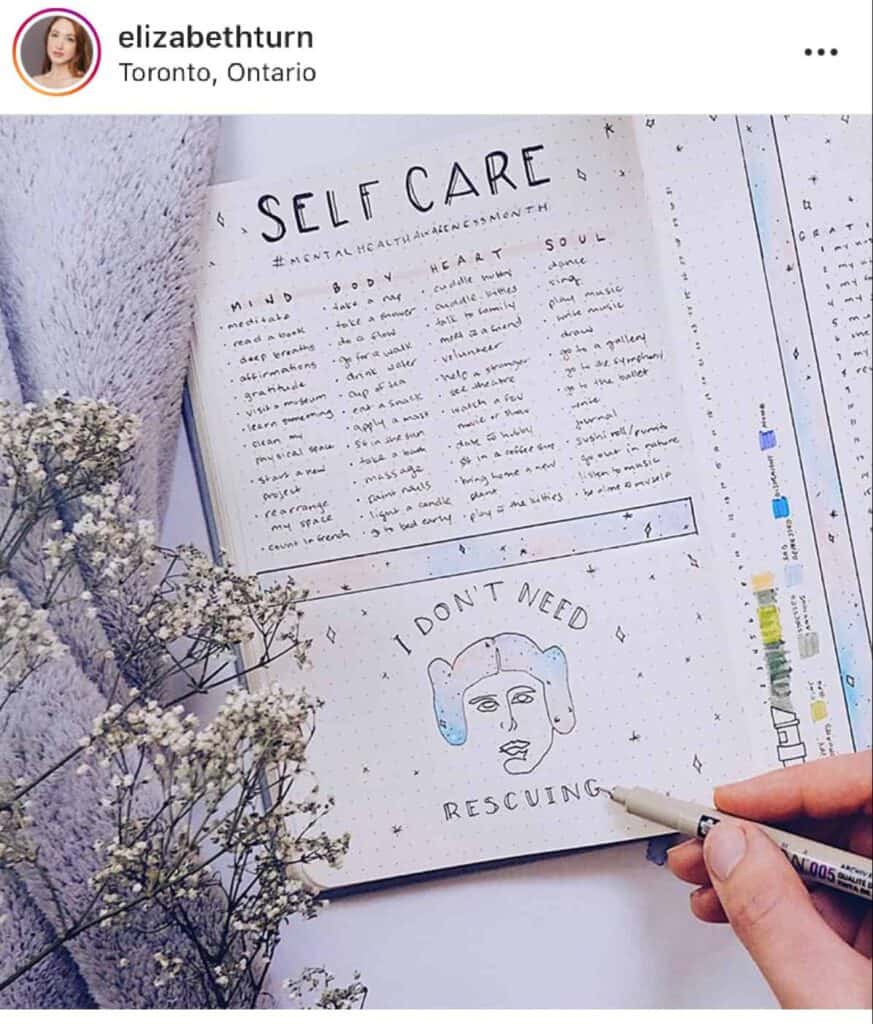 elizabethturn
Toronto, Ontario
SELF CARE
#MENTALHEALTHAWARENESSMONTH
MIND
• meditate
• read a book
• deep breaths
• affirmations
• gratitude
• visit a museum
• clean my
physical space
• start a new
project
• rearrange
my space
• count in french
BODY
• take a nap
• take a shower
• do a flow
• go for a walk
• drink water
• cup of tea
• eat a snack
• apply a mask
• sit in the sun
• take a bath
• massage
• paint nails
• light a candle
• go to bed early
HEART
• cuddle hubby
• cuddle kitties
• talk to family
• meet a friend
• volunteer
• help a stranger
• see theatre
• watch a fav
movie or show
• date hubby
• sit in a coffee shop
• bring home a new
plant
• play the kitties
SOUL
• dance
• sing
• play music
• write music
• draw
• go to a gallery
• go to the symphony
• go to the ballet
• write
• journal
• go out in nature
• listen to music
• be alone myself
I DON'T NEED
RESCUING
005